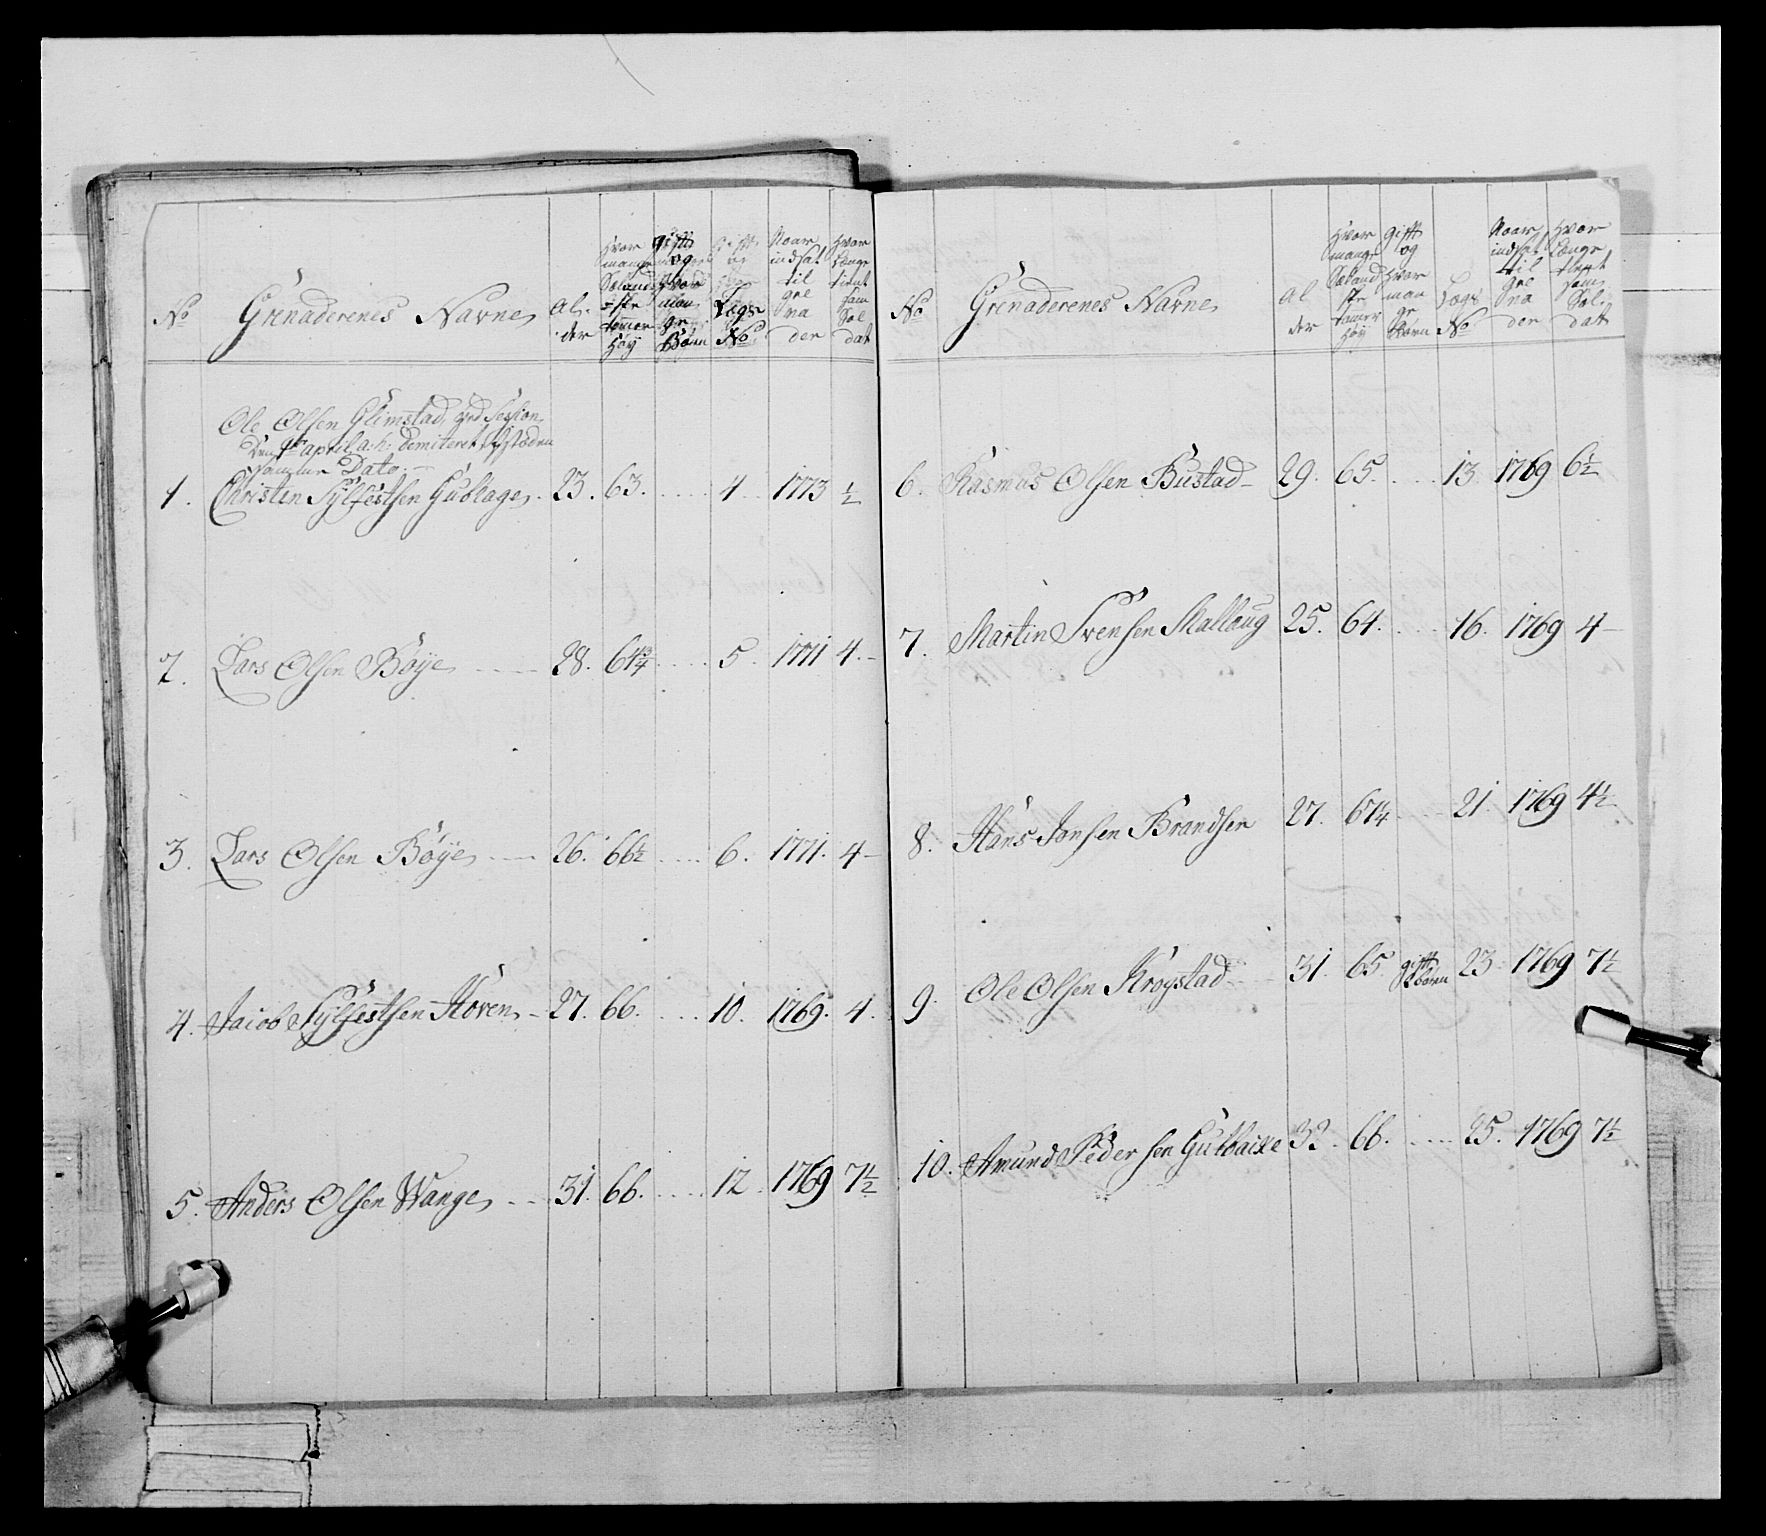 No Grenaderenes Navne Al- der Hvor mange Sælandske tommer Høÿ gift og Hvor man ge Børn Lægs No Naar indsat til gre na der Hvor Længe tient som Sol dat
Ole Olsen Glimstad, ved Session
Den april a: h: demiteret
samme Dato
1. Christen Sÿlfestsen Gublage 23. 63. 4 1773 ½
2. Lars Olsen Böÿe 28. 64¾ 5. 1771 4.
3. Lars Olsen Böÿe 26. 66½ 6. 1771. 4
4. Jacob Sÿlfestsen Hoven 27. 66. 10. 1769. 4.
5. Anders Olsen Wange 31. 66. 12 1769 7½
No Grenaderenes Navne Al der Hvor mange Sæland ske tomer Høÿ gift og Hvor man ge Børn Lægs No Naar indsat til gre na der Hvor Længe tient som Sol dat
6. Rasmus Olsen Bustad 29. 65. 13 1769 6½
7. Martin Svensen Mallaug 25. 64. 16. 1769 4
8. Hans Jansen Brandsen 27. 67¼ 21. 1769 4½
9. Ole Olsen Krøÿstad 31. 65 gift 2 børn 23 1769 7½
10. Amund Pedersen Gutdaixe 32. 66. 25. 1769 7½